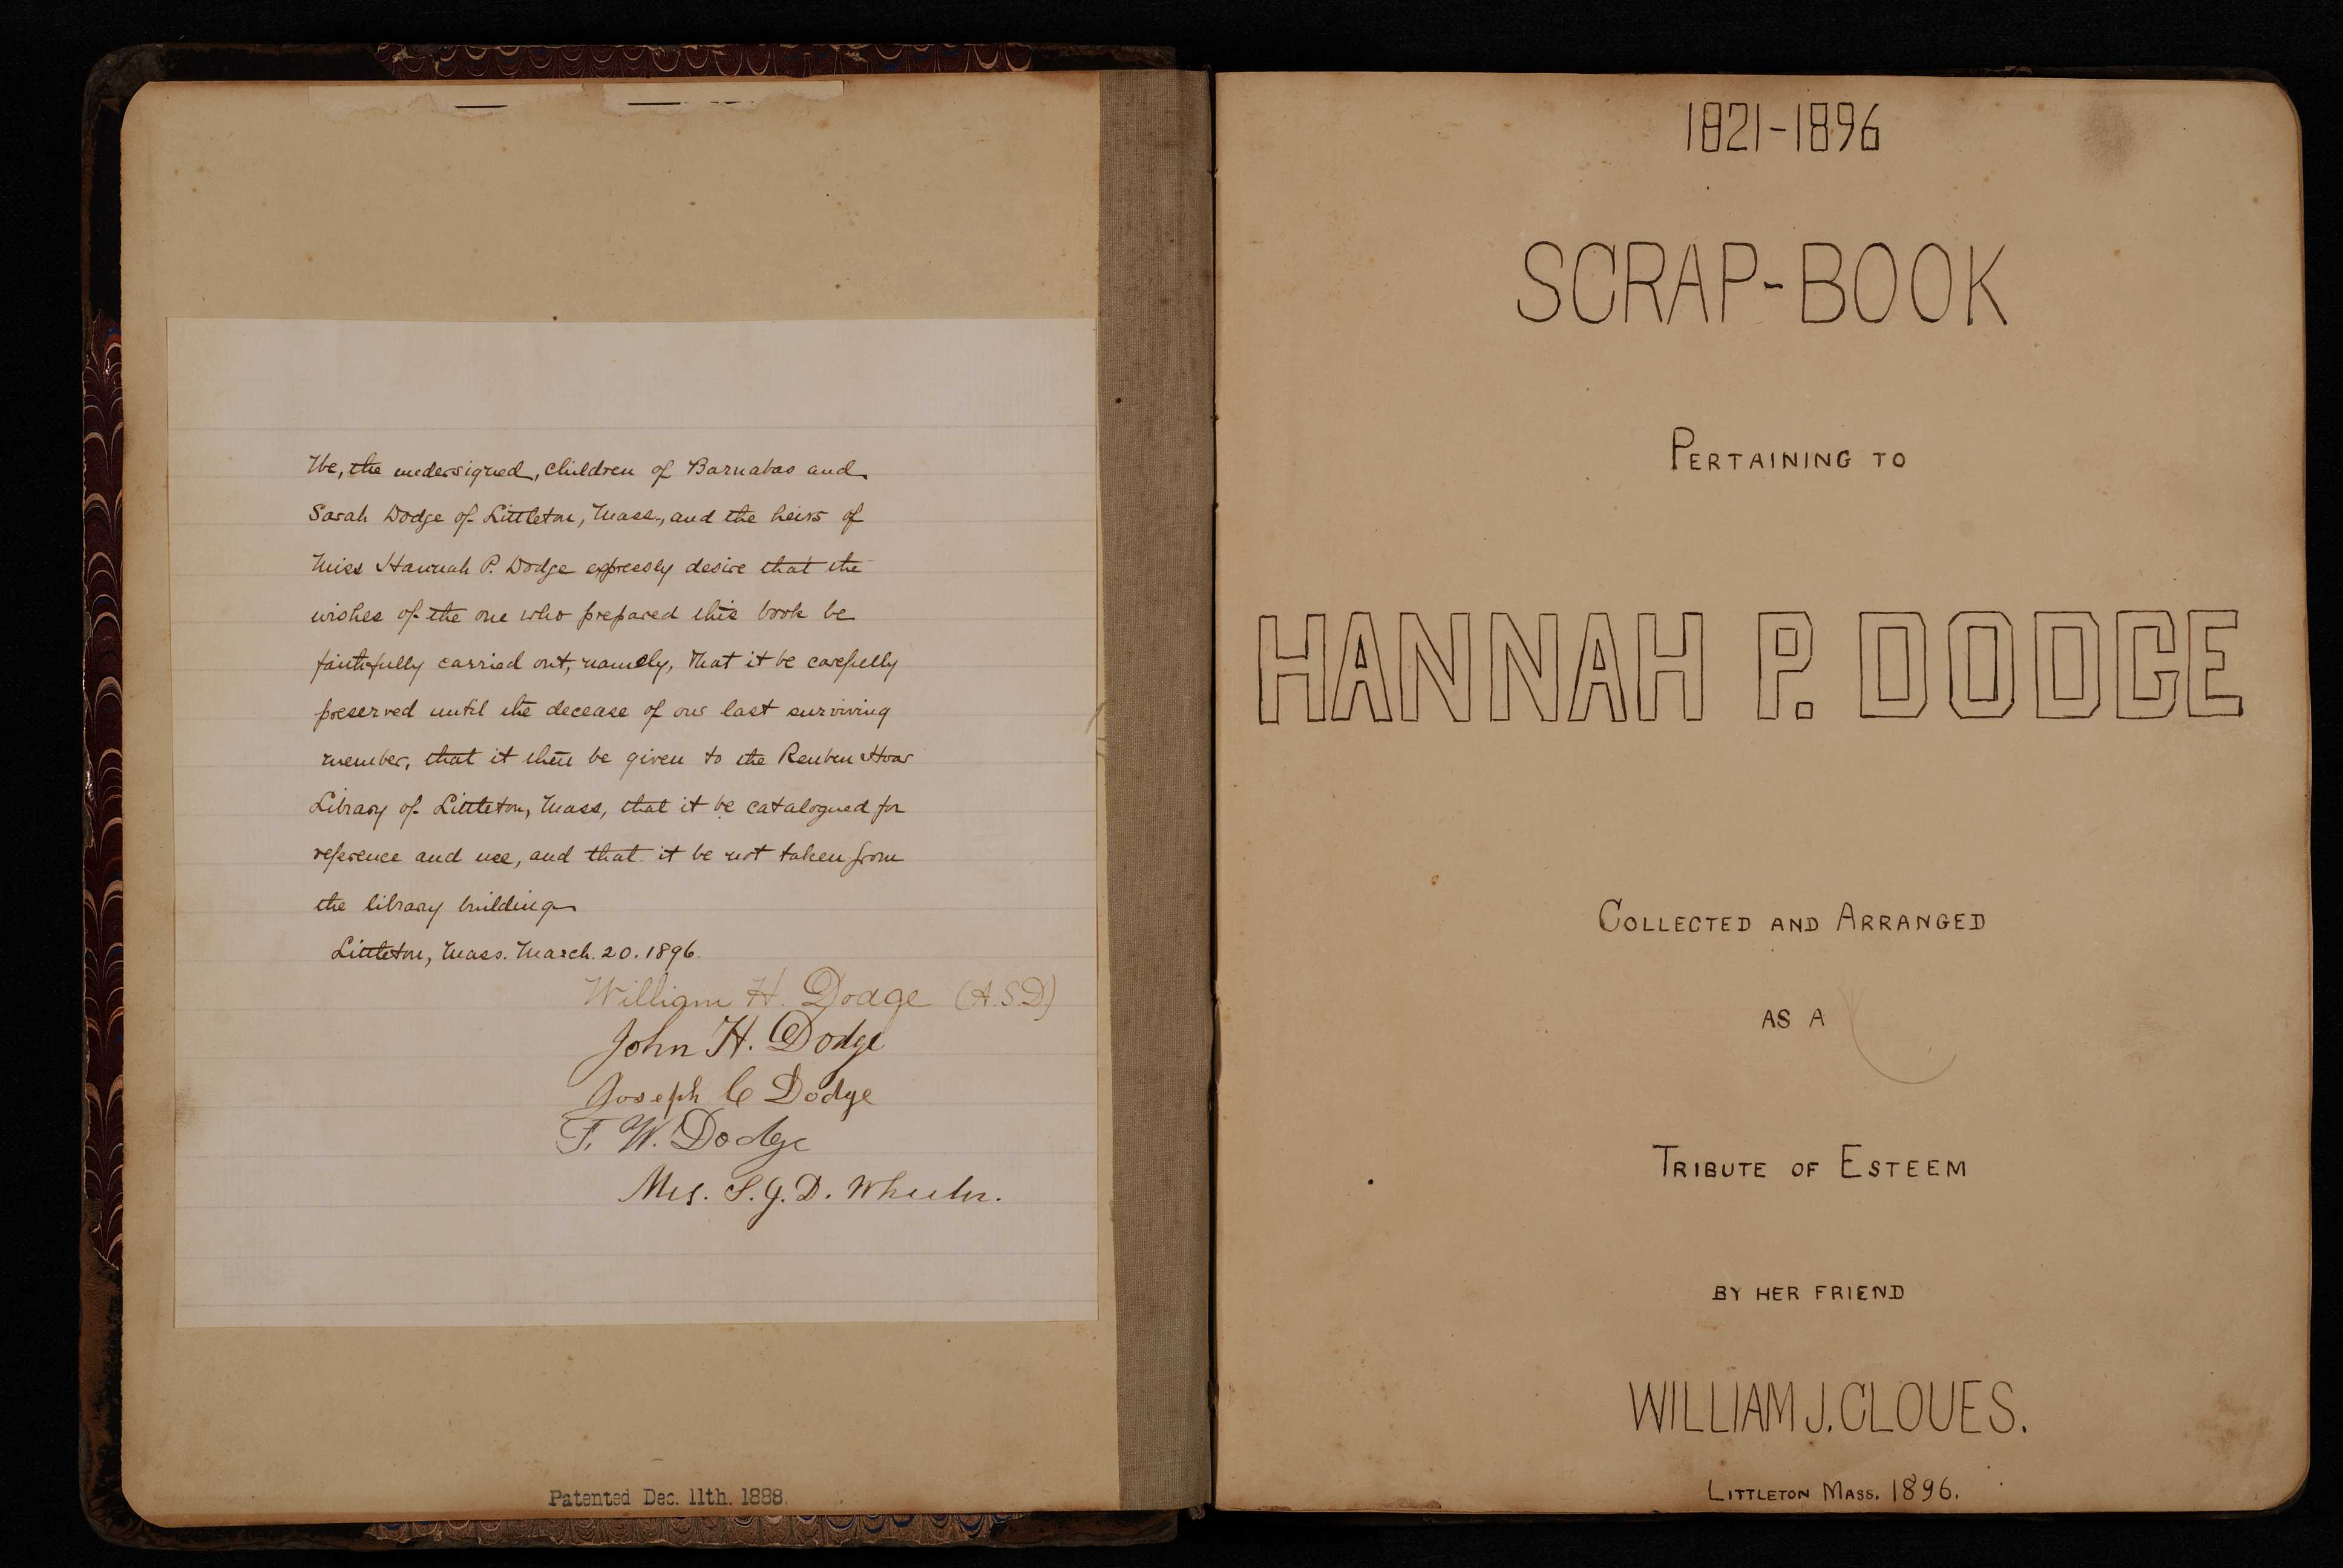 We, the undersigned, children of Barnabas and
Sarah Dodge of Littleton, Mass., and the heirs of
Miss Hannah P. Dodge expressly desire that the
wishes of the one who prepared this book be
faithfully carried out, namely, that it be carefully
preserved until the decease of our last surviving
member, that it then be given to the Reuben Hoar
Library of Littleton, Mass, that it be catalogued for
reference and use, and that it be not taken from
the library building
Littleton, Mass. March. 20. 1896.
William H. Dodge (A.S.D)
John H. Dodge
Joseph C Dodge
F. W. Dodge
Mrs. S. G. D. Wheeler.
Patented Dec. 11th. 1888.
1821-1896
SCRAP-BOOK
PERTAINING TO
HANNAH P. DODGE
COLLECTED AND ARRANGED
AS A
TRIBUTE OF ESTEEM
BY HER FRIEND
WILLIAM J. CLOUES.
LITTLETON MASS. 1896.